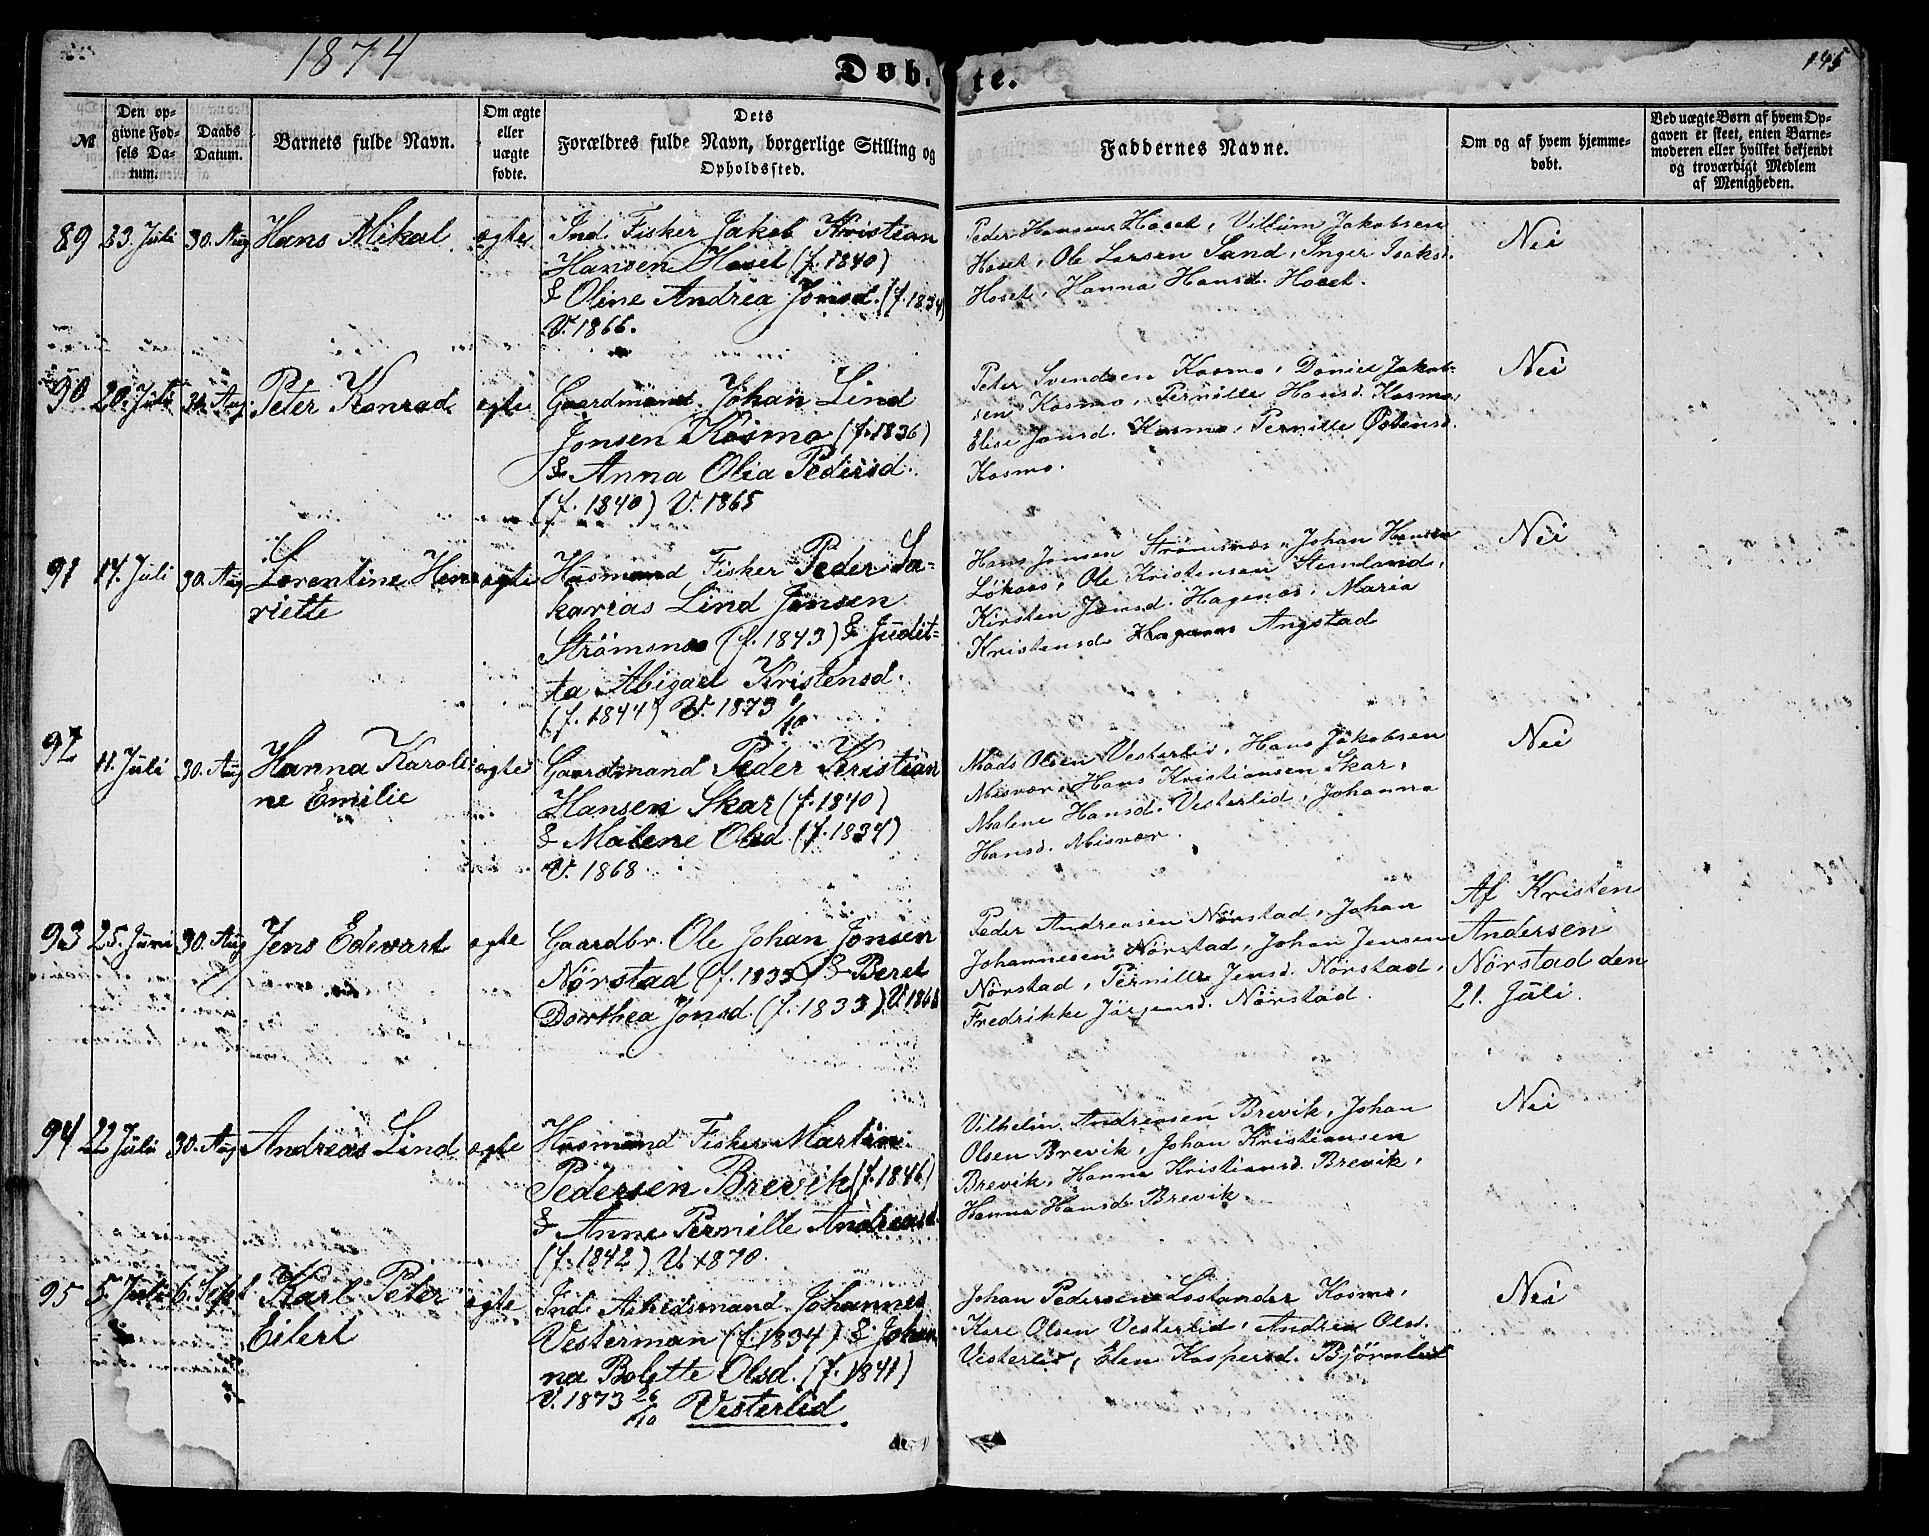 1874
Døb- te.
145
№
Den op-
givne Fød-
sels Da-
tum.
Daabs
Datum.
Barnets fulde Navn.
Om ægte
eller
uægte
fødte.
Dets
Forældres fulde Navn, borgerlige Stilling og
Opholdssted.
Faddernes Navne.
Om og af hvem hjemme-
døbt.
Ved uægte Børn af hvem Op-
gaven er skeet, enten Barne-
moderen eller hvilket bekjendt
og troværdigt Medlem
af Menigheden.
89 23. Juli 30. Aug Hans Mikal ægte
Ind. Fisker Jakob Kristian
Hansen Hoset (f. 1840)
& Oline Andrea Jonsd. (f. 1834)
V. 1866.
Peder Hansen Hoset, Villum Jakobsen
Hoset, Ole Larsen Sand, Inger Isaks.
Hoset, Hanna Hansd. Hoset.
Nei
90 20. Juli 30. Aug. Peter Konrad ægte
Gaardmand Johan Lind
Jonsen Kosmo (f. 1836)
& Anna Olia Pedersd.
(f. 1840) V. 1865
Peter Svendsen Kosmo, Daniel Jakob-
sen Kosmo, Pernille Hansd. Kosmo,
Elise Jonsd. Kosmo, Pernille Østensd.
Kosmo.
Nei
91 14. Juli 30. Aug Lorentine Hen- ægte
riette
Husmand Fisker Peder Sa-
karias Lind Jonsen
Strømsnes (f. 1843) & Judit-
ta Abigael Kristensd.
(f. 1844) V. 1873 /10
Hans Jonsen Strømsnes, Johan Hansen
Løkaas, Ole Kristensen Stemland,
Kirsten Jonsd. Hagenæs, Maria
Kristensd. Angstad
Nei
92 11. Juli 30. Aug Hanna Karoli- ægte
ne Emilie
Gaardmand Peder Kristian
Hansen Skar (f. 1840)
& Malene Olsd. (f. 1834)
V. 1868.
Mads Olsen Vesterlid, Hans Jakobsen
Misvær, Hans Kristiansen Skar,
Malene Hansd. Vesterlid, Johanna
Hansd. Misvær.
Nei
93 25. Juni 30. Aug Jens Edevart ægte
Gaardbr. Ole Johan Jonsen
Nørstad (f. 1835) & Beret
Dorthea Jonsd. (f. 1833) V. 1868
Peder Andreasen Nørstad, Johan
Johannesen Nørstad, Johan Jensen
Nørstad, Pernille Jensd. Nørstad,
Fredrikke Jørgensd. Nørstad.
Af Kristen
Andersen
Nørstad den
21. Juli.
94 22 Juli 30. Aug Andreas Lind ægte
Husmand Fisker Martin
Pedersen Brevik (f. 1846)
& Anne Pernille Andreasd.
(f. 1842) V. 1870.
Vilhelm Andreasen Brevik, Johan
Olsen Brevik, Johan Kristiansen
Brevik, Hanna Kristiansd. Brevik,
Hanna Hansd. Brevik.
Nei
95 5. Juli 6. Sept. Karl Peter ægte
Eilert
Ind. Arbeidsmand Johannes
Vesterman (f. 1834) & Johan
na Bolette Olsd. (f. 1841)
V. 1873 26/10 Vesterlid
Johan Pedersen Kosmo,
Kare Olsen Vesterlid, Andrea Olsd.
Vesterlid, Elen Kaspersd. Bjørnlid
Nei